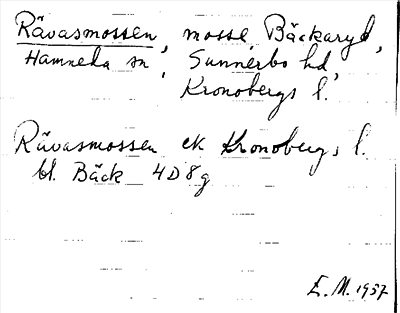 Rävasmossen, mosse, Bäckaryd,
Hamneda sn, Sunnerbo hd,
Kronobergs l.
Rävasmossen ek Kronobergs l.
bl. Bäck 4D8g
E.M. 1957